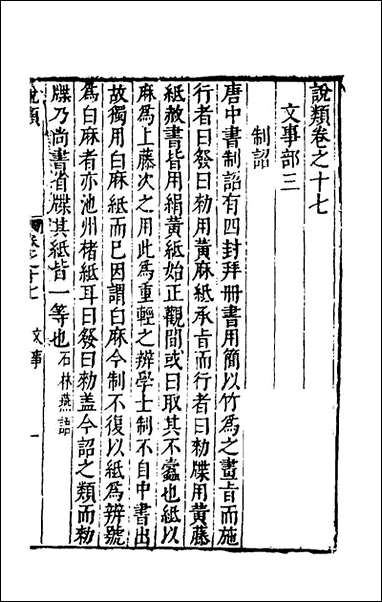 說類卷之十七
文事部三
制詔
唐中書制詔有四封拜册書用簡以竹爲之畫旨而施
行者曰發曰勑用黃麻紙承旨而行者曰勑牒用黃藤
紙赦書皆用絹黃紙始正觀間或曰取其不蠹也紙以
麻爲上藤次之用此爲重輕之辨學士制不自中書出
故獨用白麻紙而已因謂白麻今制不復以紙爲辨號
爲白麻者亦池州楮紙耳曰發曰勑蓋今詔之類而勑
牒乃尚書省牒其紙皆一等也石林燕語
說類 卷之十七 文事 一